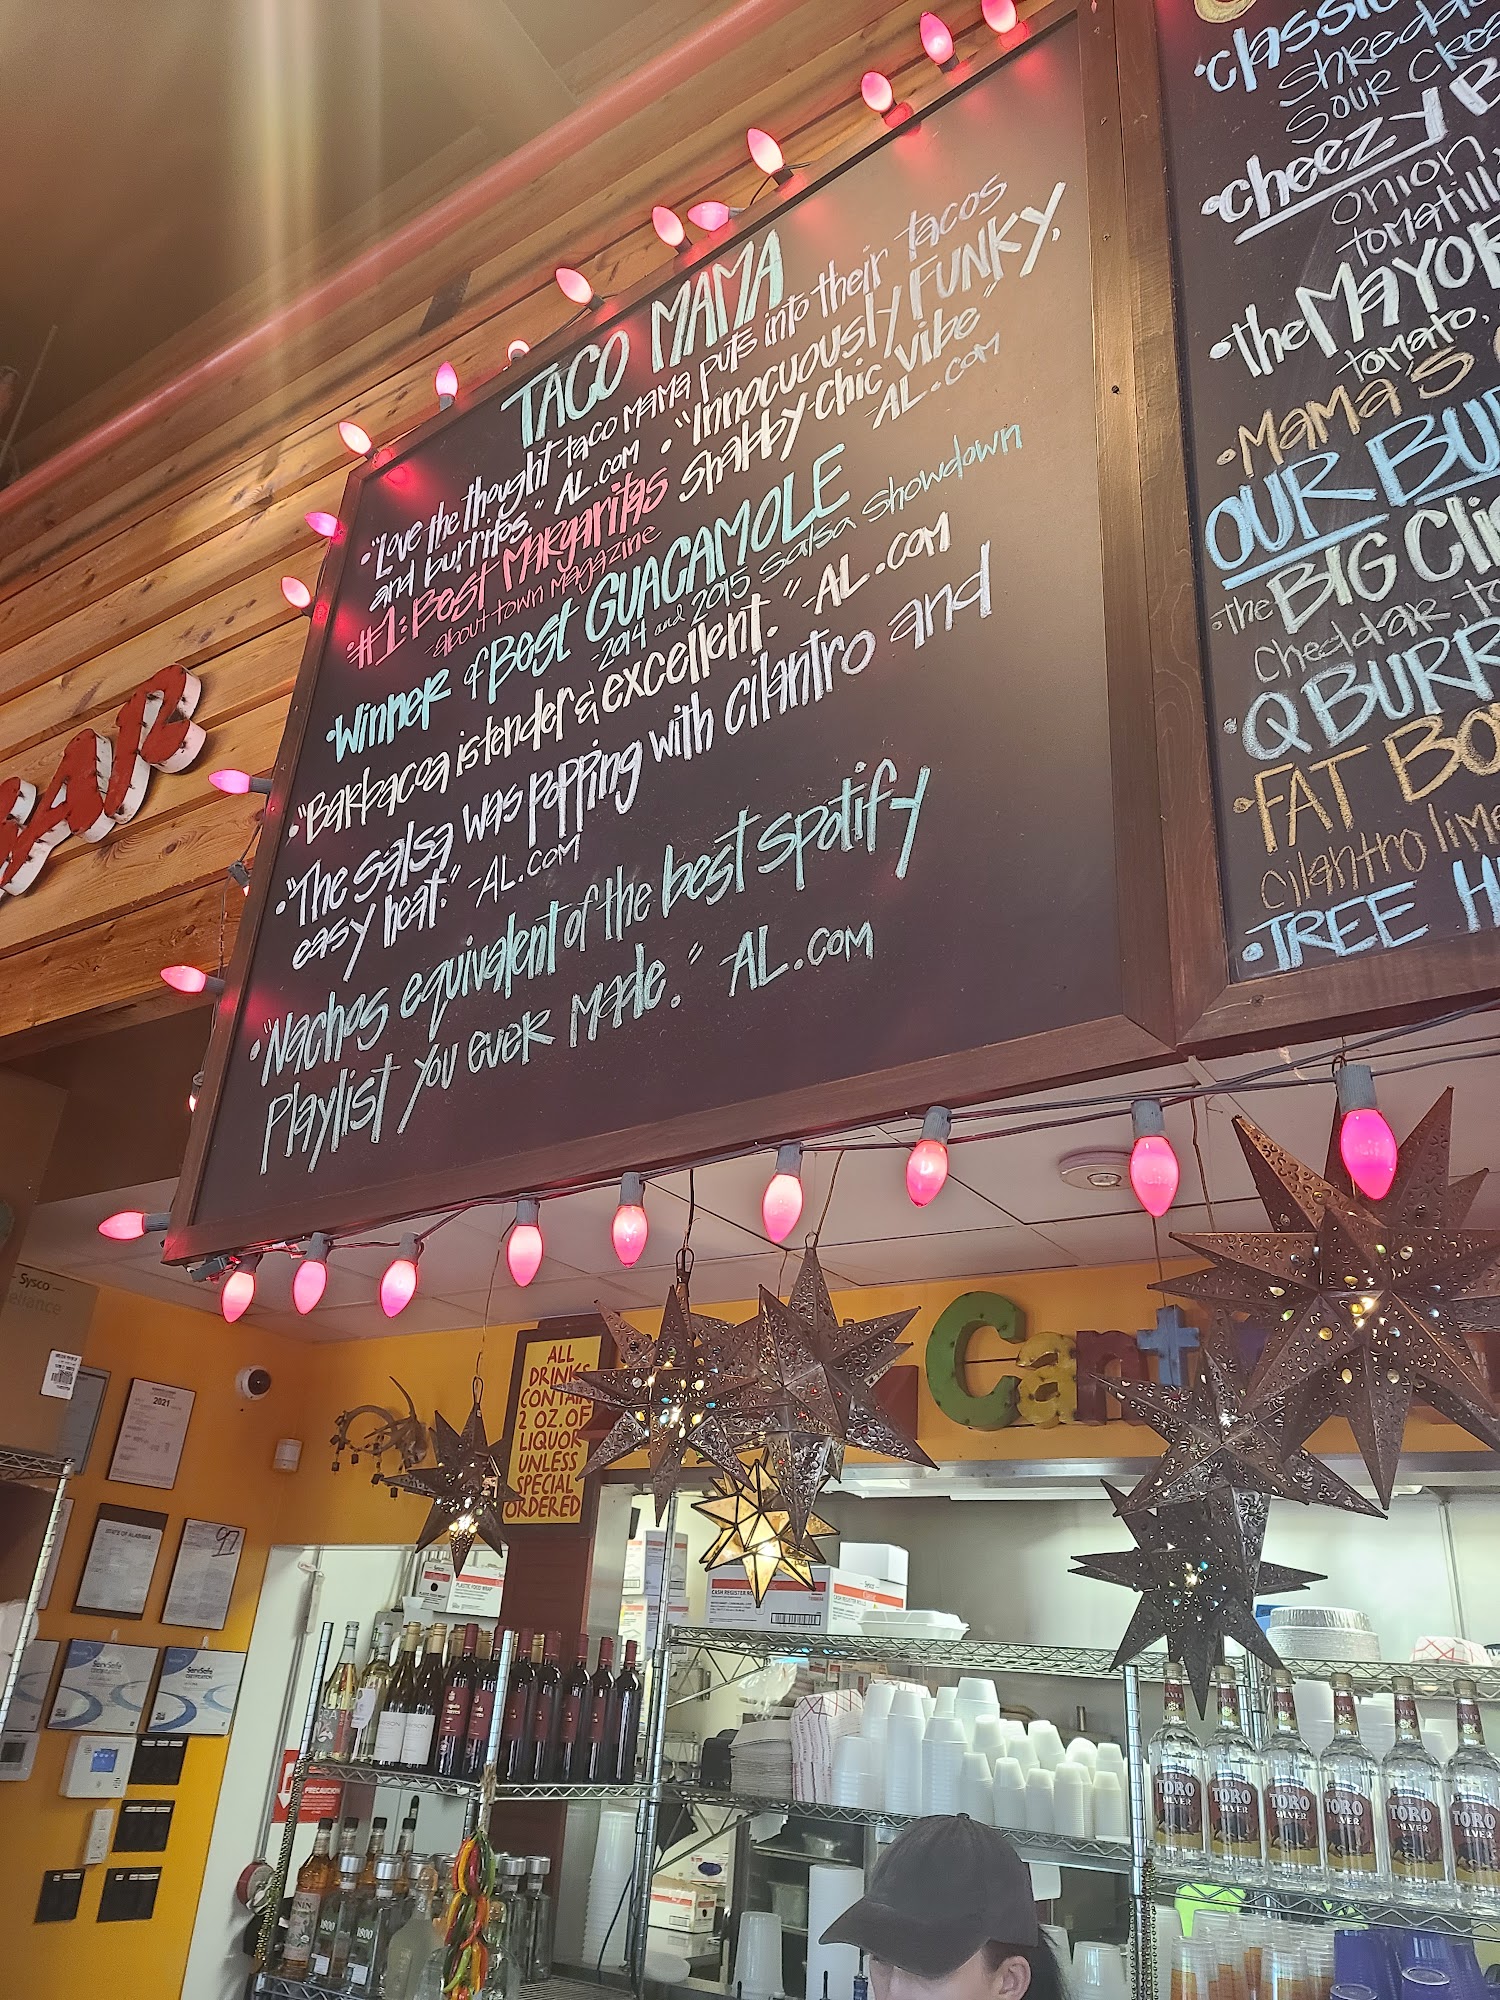 TACO MAMA
• "Love the thought taco mama puts into their tacos
and burritos." AL.com
• "Innocuously FUNKY,
shabby-chic vibe" -AL.com
• #1: Best Margaritas
-about town magazine
• Winner of Best GUACAMOLE
-2014 and 2015 Salsa Showdown
• "Barbacoa is tender & excellent." -AL.com
• "The salsa was popping with cilantro and
easy heat." -AL.com
• "Nachos equivalent of the best spotify
playlist you ever made." -AL.com
• Classic
shredded
sour crea
• Cheezy B
onion,
tomatill
• the MAYOR
tomato,
• MAMA'S
OUR BU
• the BIG Cli
Cheddar, to
• Q BURR
• FAT BO
cilantro lime
• TREE H
BAR
Sysco
Cant
ALL
DRINKS
CONTAIN
2 OZ. OF
LIQUOR
UNLESS
SPECIAL
ORDERED
2021
STATE OF ALABAMA
97
ServSafe
ServSafe
PLASTIC FOOD WRAP
CASH REGISTER RO
CASH REGISTER ROLLS
PRECAUCION
1800
1800
TORO
SILVER
TORO
SILVER
TORO
SILVER
TORO
SILVER
TORO
SILVER
TORO
SILVER